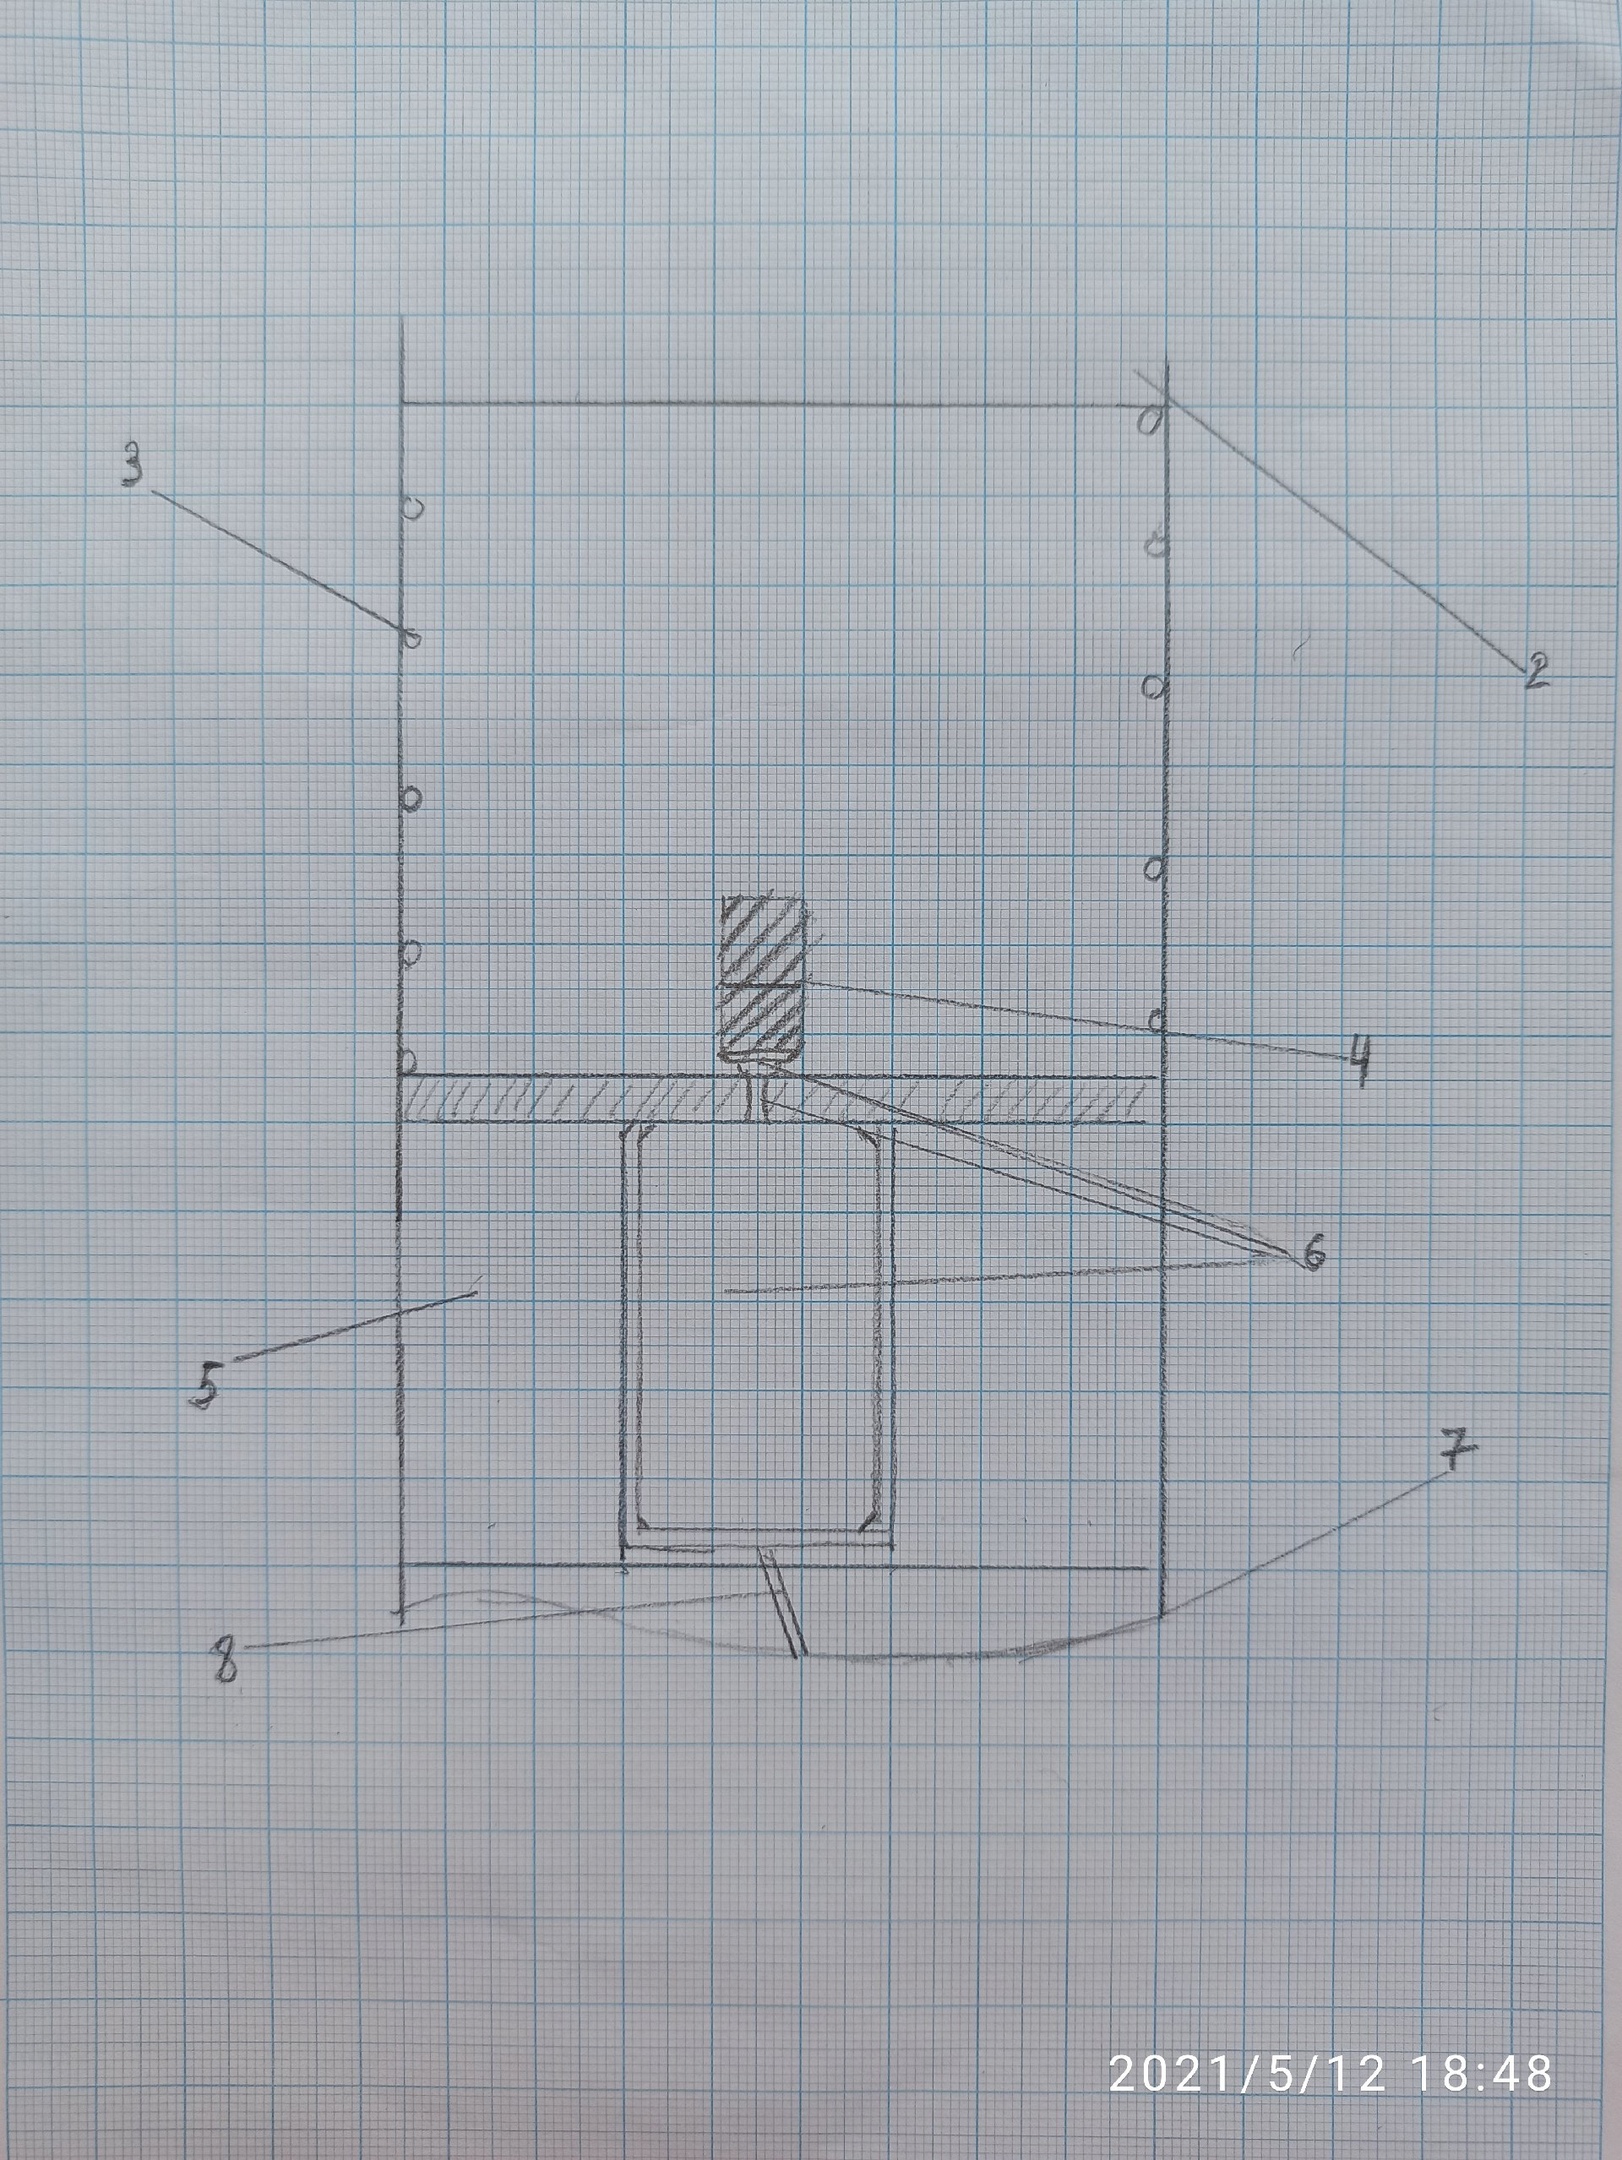 3
2
4
6
5
7
8
2021/5/12 18:48